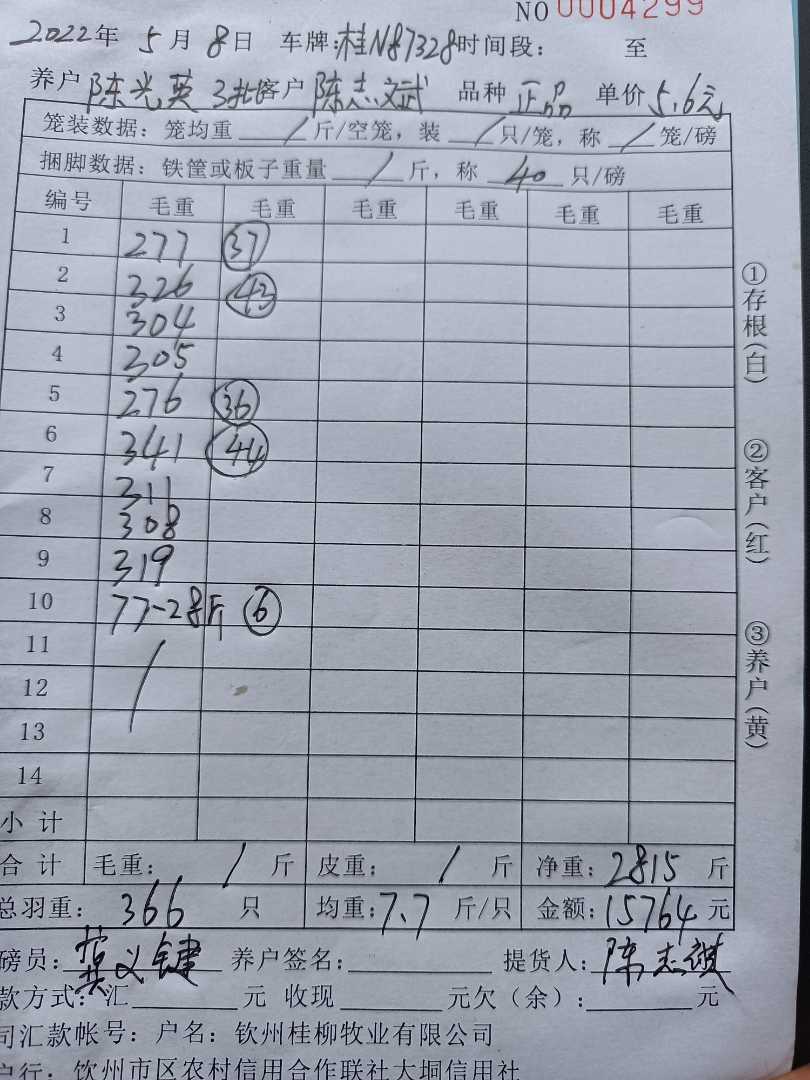 NO 0004299
2022年 5月 8日 车牌:桂N87328时间段: 至
养户 陈光英 3批客户 陈志斌 品种 正品 单价5.6元
笼装数据: 笼均重 / 斤/空笼, 装 / 只/笼, 称 / 笼/磅
捆脚数据: 铁筐或板子重量 / 斤, 称 40 只/磅
编号 毛重 毛重 毛重 毛重 毛重 毛重
1 277 37
2 326 43
3 304
4 305
5 276 36
6 341 44
7 311
8 308
9 319
10 77-28斤 6
11 /
12
13
14
小计
合计 毛重: / 斤 皮重: / 斤 净重: 2815 斤
总羽重: 366 只 均重: 7.7 斤/只 金额: 15764 元
磅员: 义键 养户签名: 提货人: 陈志
款方式: 汇 元 收现 元欠(余): 元
司汇款帐号: 户名: 钦州桂柳牧业有限公司
户行: 钦州市区农村信用合作联社大垌信用社
①存根(白)
②客户(红)
③养户(黄)